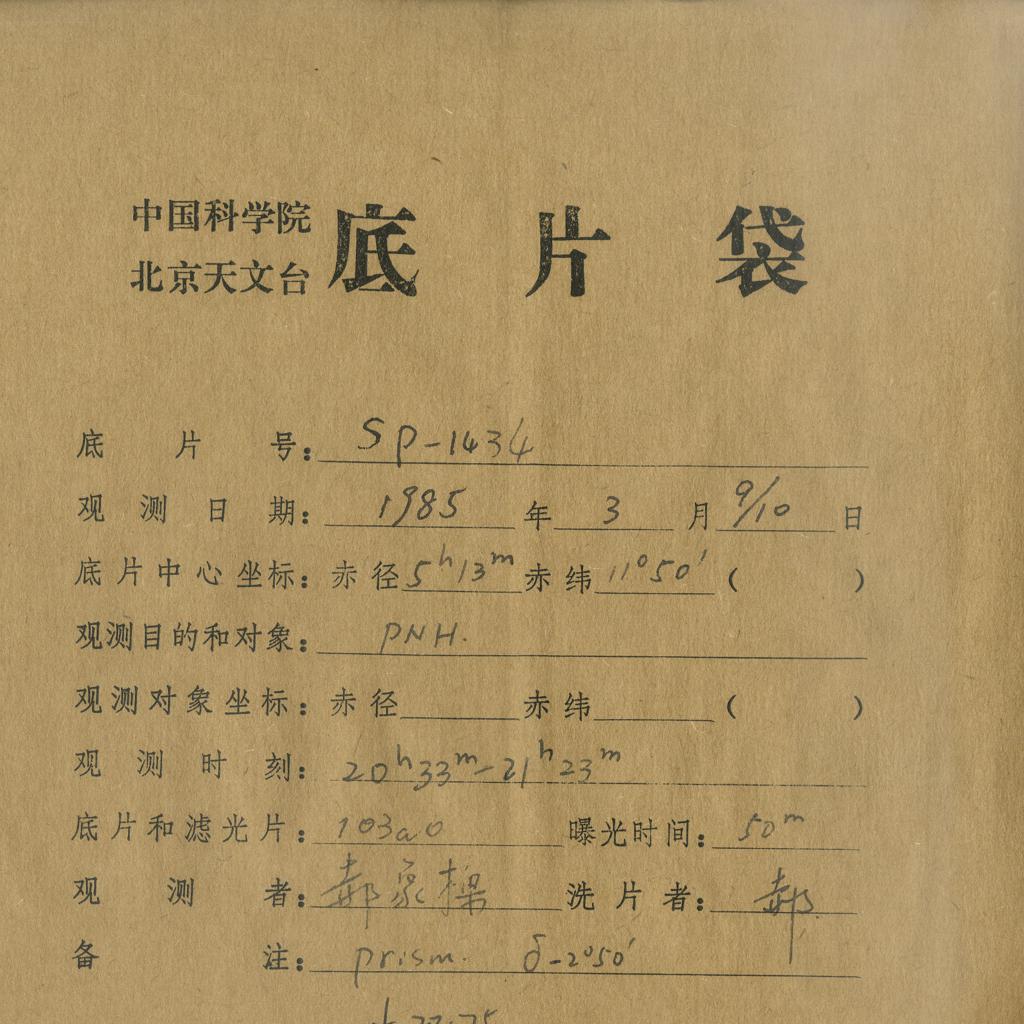 中国科学院
北京天文台
底片袋
底片号: Sp-1434
观测日期: 1985 年 3 月 9/10 日
底片中心坐标: 赤径 5ʰ13ᵐ 赤纬 11°50′ ( )
观测目的和对象: PNH.
观测对象坐标: 赤径 赤纬 ( )
观测时刻: 20ʰ33ᵐ-21ʰ23ᵐ
底片和滤光片: 103aO 曝光时间: 50ᵐ
观测者: 郝 洗片者: 郝
备注: prism. δ-2°50′